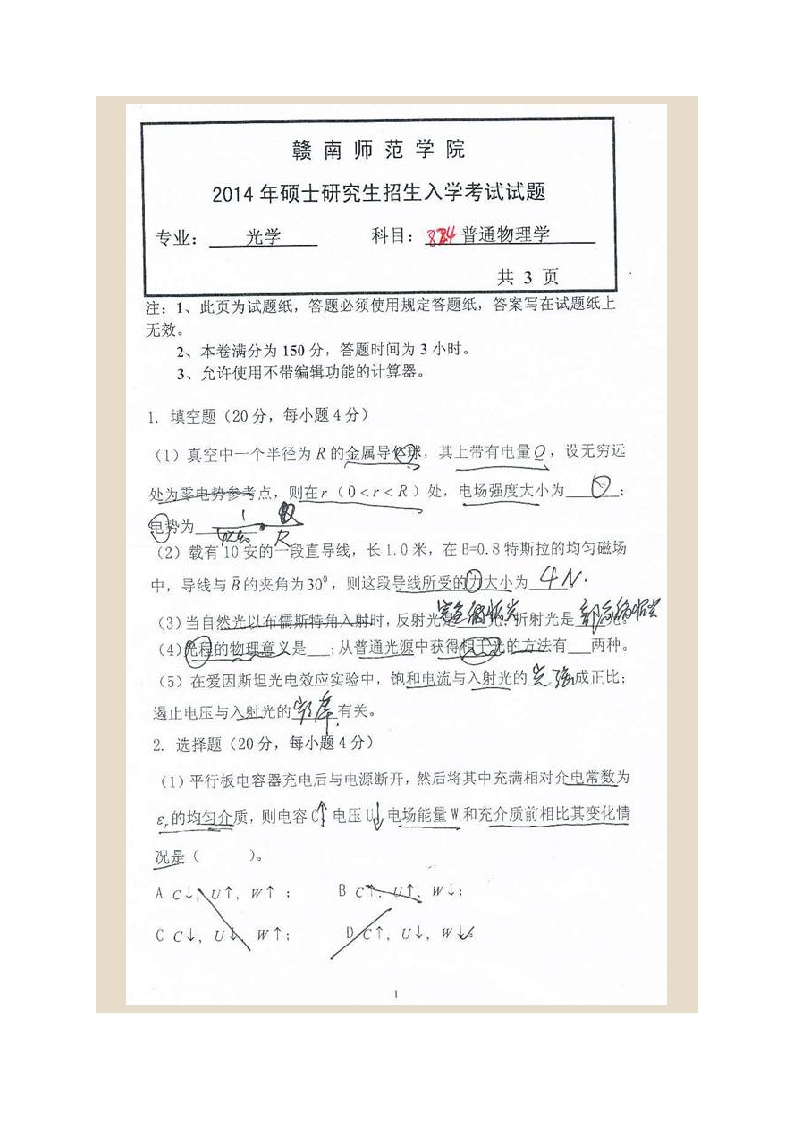 赣南师范学院
2014年硕士研究生招生入学考试试题
专业： 光学 科目： 824 普通物理学
共 3 页
注：1、此页为试题纸，答题必须使用规定答题纸，答案写在试题纸上
无效。
2、本卷满分为150分，答题时间为3小时。
3、允许使用不带编辑功能的计算器。
1. 填空题（20分，每小题4分）
（1）真空中一个半径为R的金属导体球，其上带有电量Q，设无穷远
处为零电势参考点，则在r（0<r<R）处，电场强度大小为 0 ；
电势为
（2）载有10安的一段直导线，长1.0米，在B=0.8特斯拉的均匀磁场
中，导线与B的夹角为30⁰，则这段导线所受的力大小为 4N.
（3）当自然光以布儒斯特角入射时，反射光是 完全偏振光 光，折射光是 部分偏振光 光。
（4）光程的物理意义是___；从普通光源中获得相干光的方法有___两种。
（5）在爱因斯坦光电效应实验中，饱和电流与入射光的 光强 成正比；
遏止电压与入射光的 频率 有关。
2. 选择题（20分，每小题4分）
（1）平行板电容器充电后与电源断开，然后将其中充满相对介电常数为
εr的均匀介质，则电容C↑电压U↓电场能量W和充介质前相比其变化情
况是（ ）。
A C↓，U↑，W↑； B C↑，U↑，W↓；
C C↓，U↓，W↑； D C↑，U↓，W↓。
1